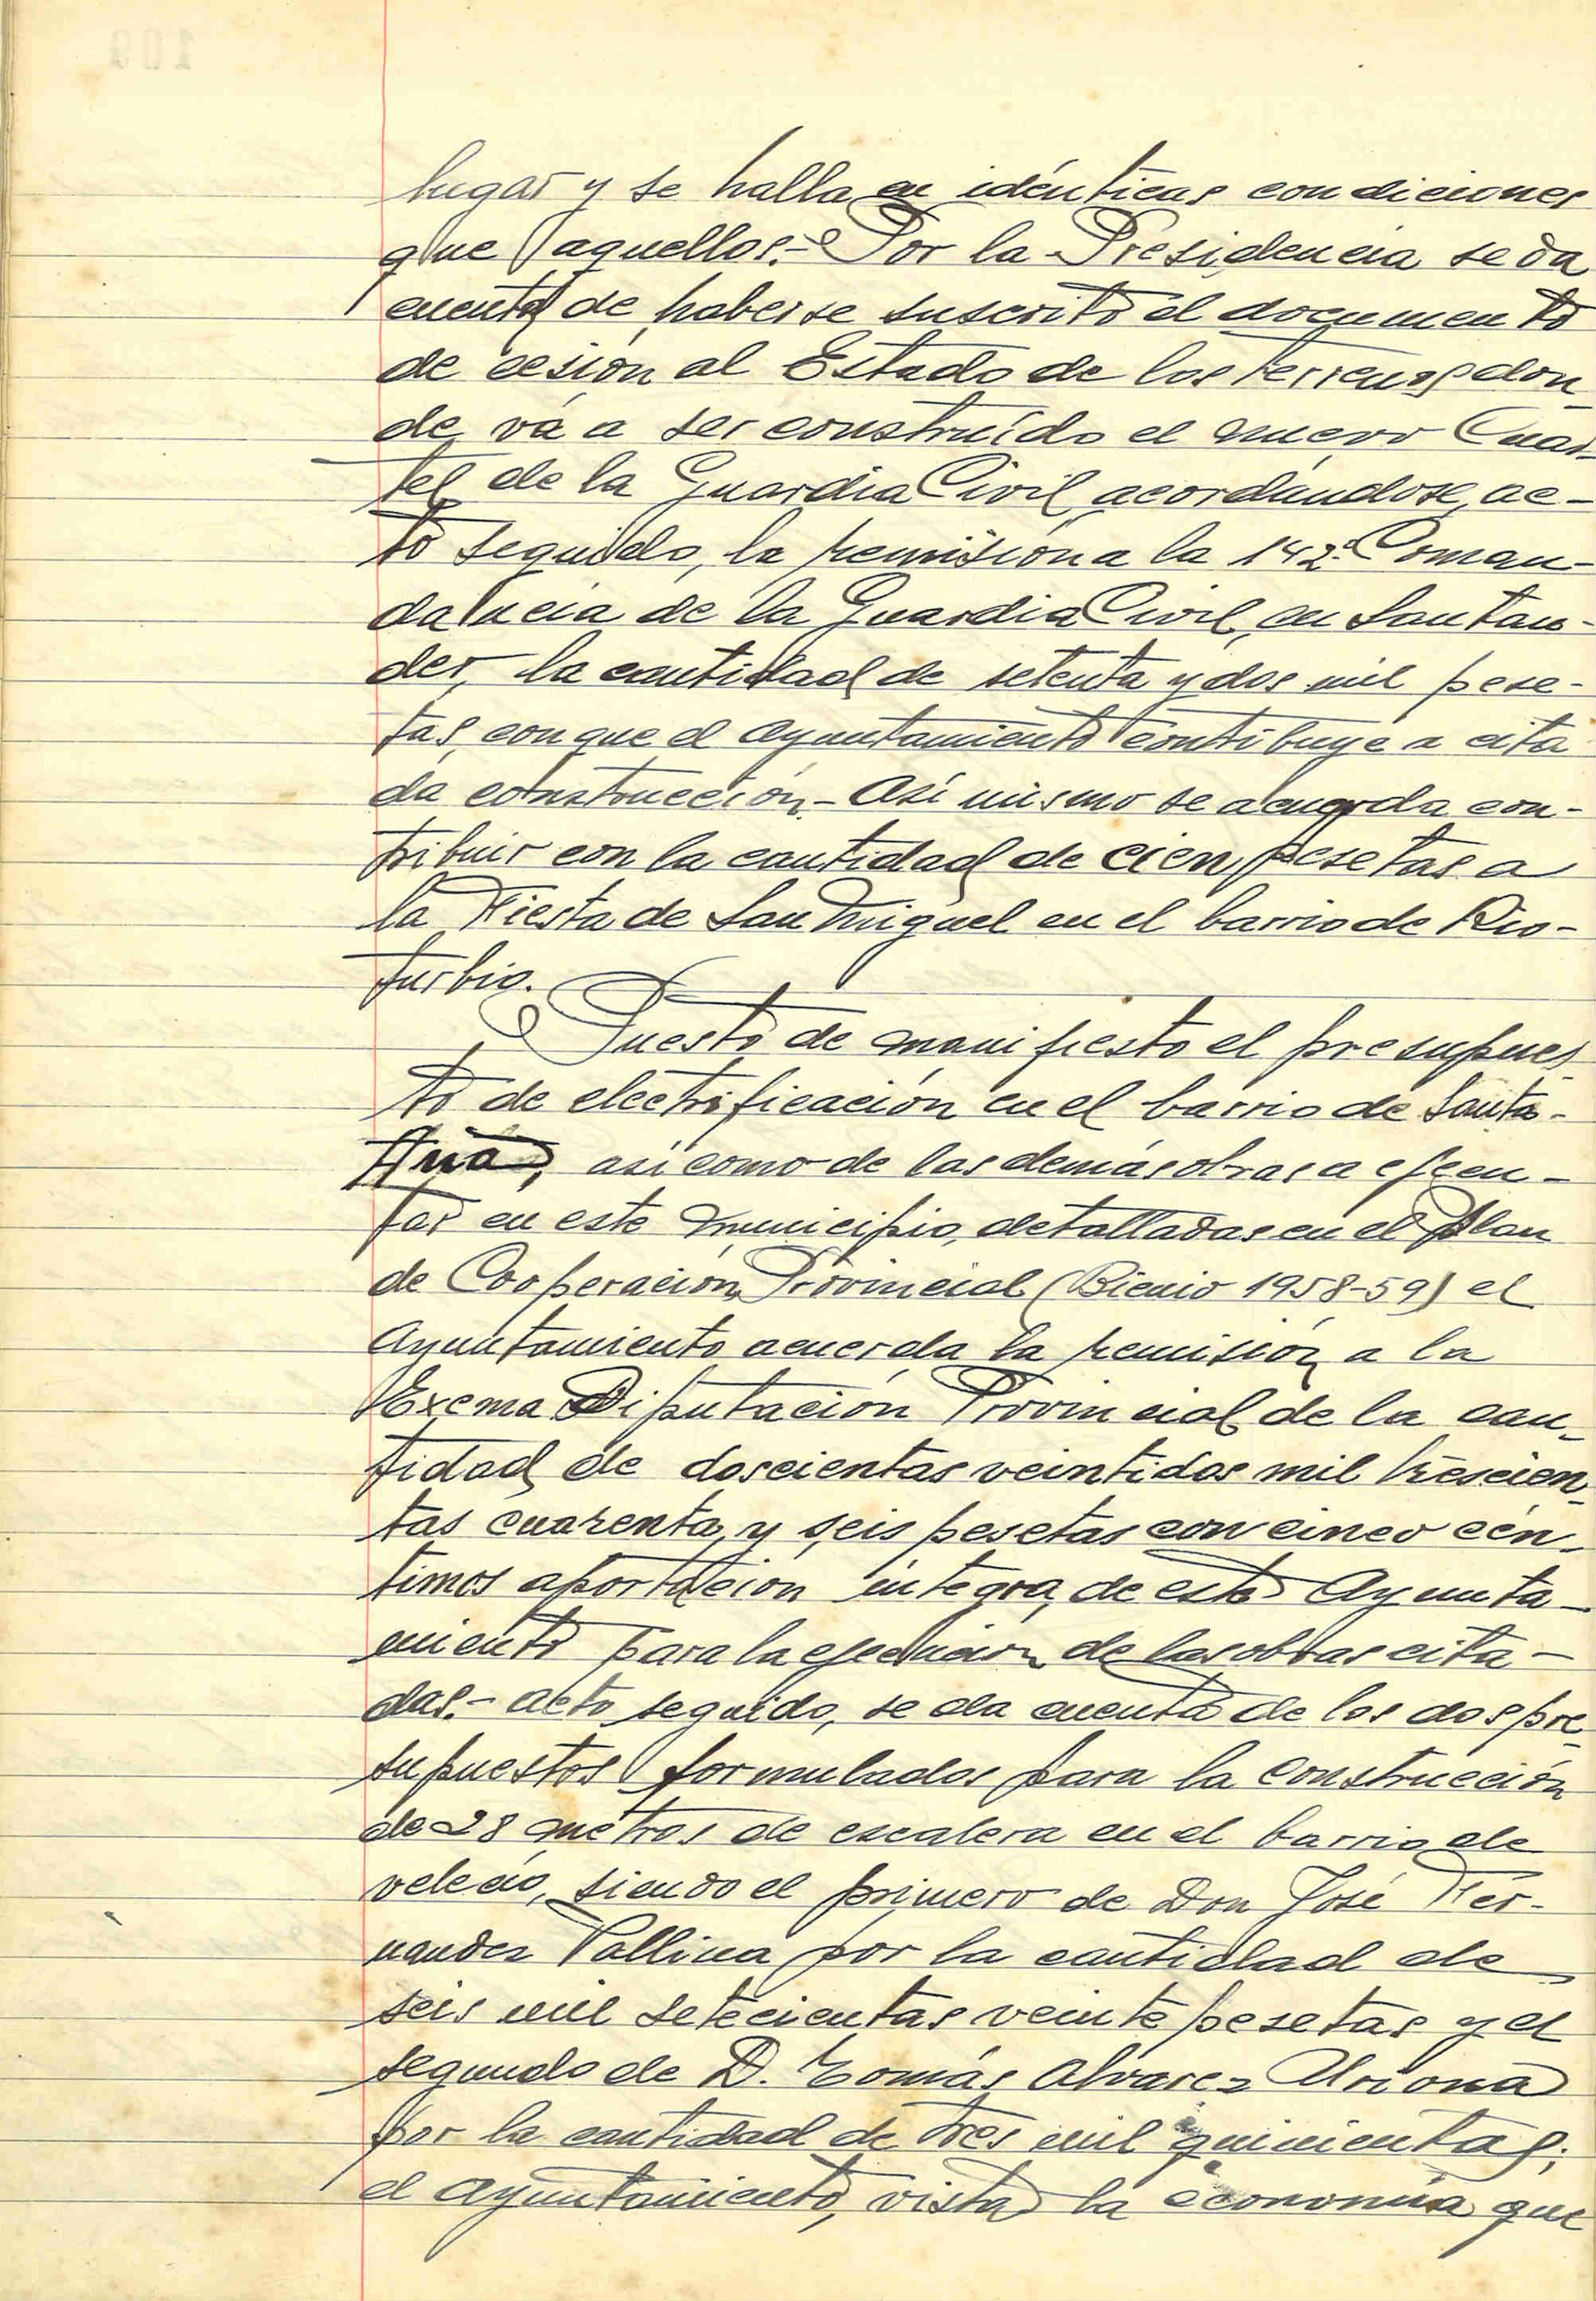 lugar y se halla en idénticas condiciones
que aquellos.- Por la Presidencia se da
cuenta de haberse suscrito el documento
de cesión al Estado de los terrenos don
de vá a ser construído el nuevo Cuar-
tel de la Guardia Civil, acordándose, ac-
to seguido, la remisión a la 142ª Coman-
dancia de la Guardia Civil, en Santan-
der, la cantidad de setenta y dos mil pese-
tas, con que el Ayuntamiento contribuye a cita
da construcción.- Así mismo se acuerda con-
tribuir con la cantidad de cien pesetas a
la Fiesta de San Miguel en el barrio de Rio-
turbio.
Puesto de manifiesto el presupues
to de electrificación en el barrio de Santa-
Ana, así como de las demás obras a ejecu-
tar en este Municipio, detalladas en el Plan
de Cooperación Provincial (Bienio 1958-59) el
Ayuntamiento acuerda la remisión a la
Excma Diputación Provincial de la can-
tidad de doscientas veintidos mil trescien-
tas cuarenta y seis pesetas con cinco cén-
timos aportación íntegra de este Ayunta-
miento para la ejecución de las obras cita-
das.- acto seguido, se da cuenta de los dos pre-
supuestos formulados para la construcción
de 28 metros de escalera en el barrio de
velecio, siendo el primero de Don José Fer-
nandez Vallina por la cantidad de
seis mil setecientas veinte pesetas y el
segundo de D. Tomás Alvarez Uriona
por la cantidad de tres mil quinientas;
el Ayuntamiento, vista la economía que